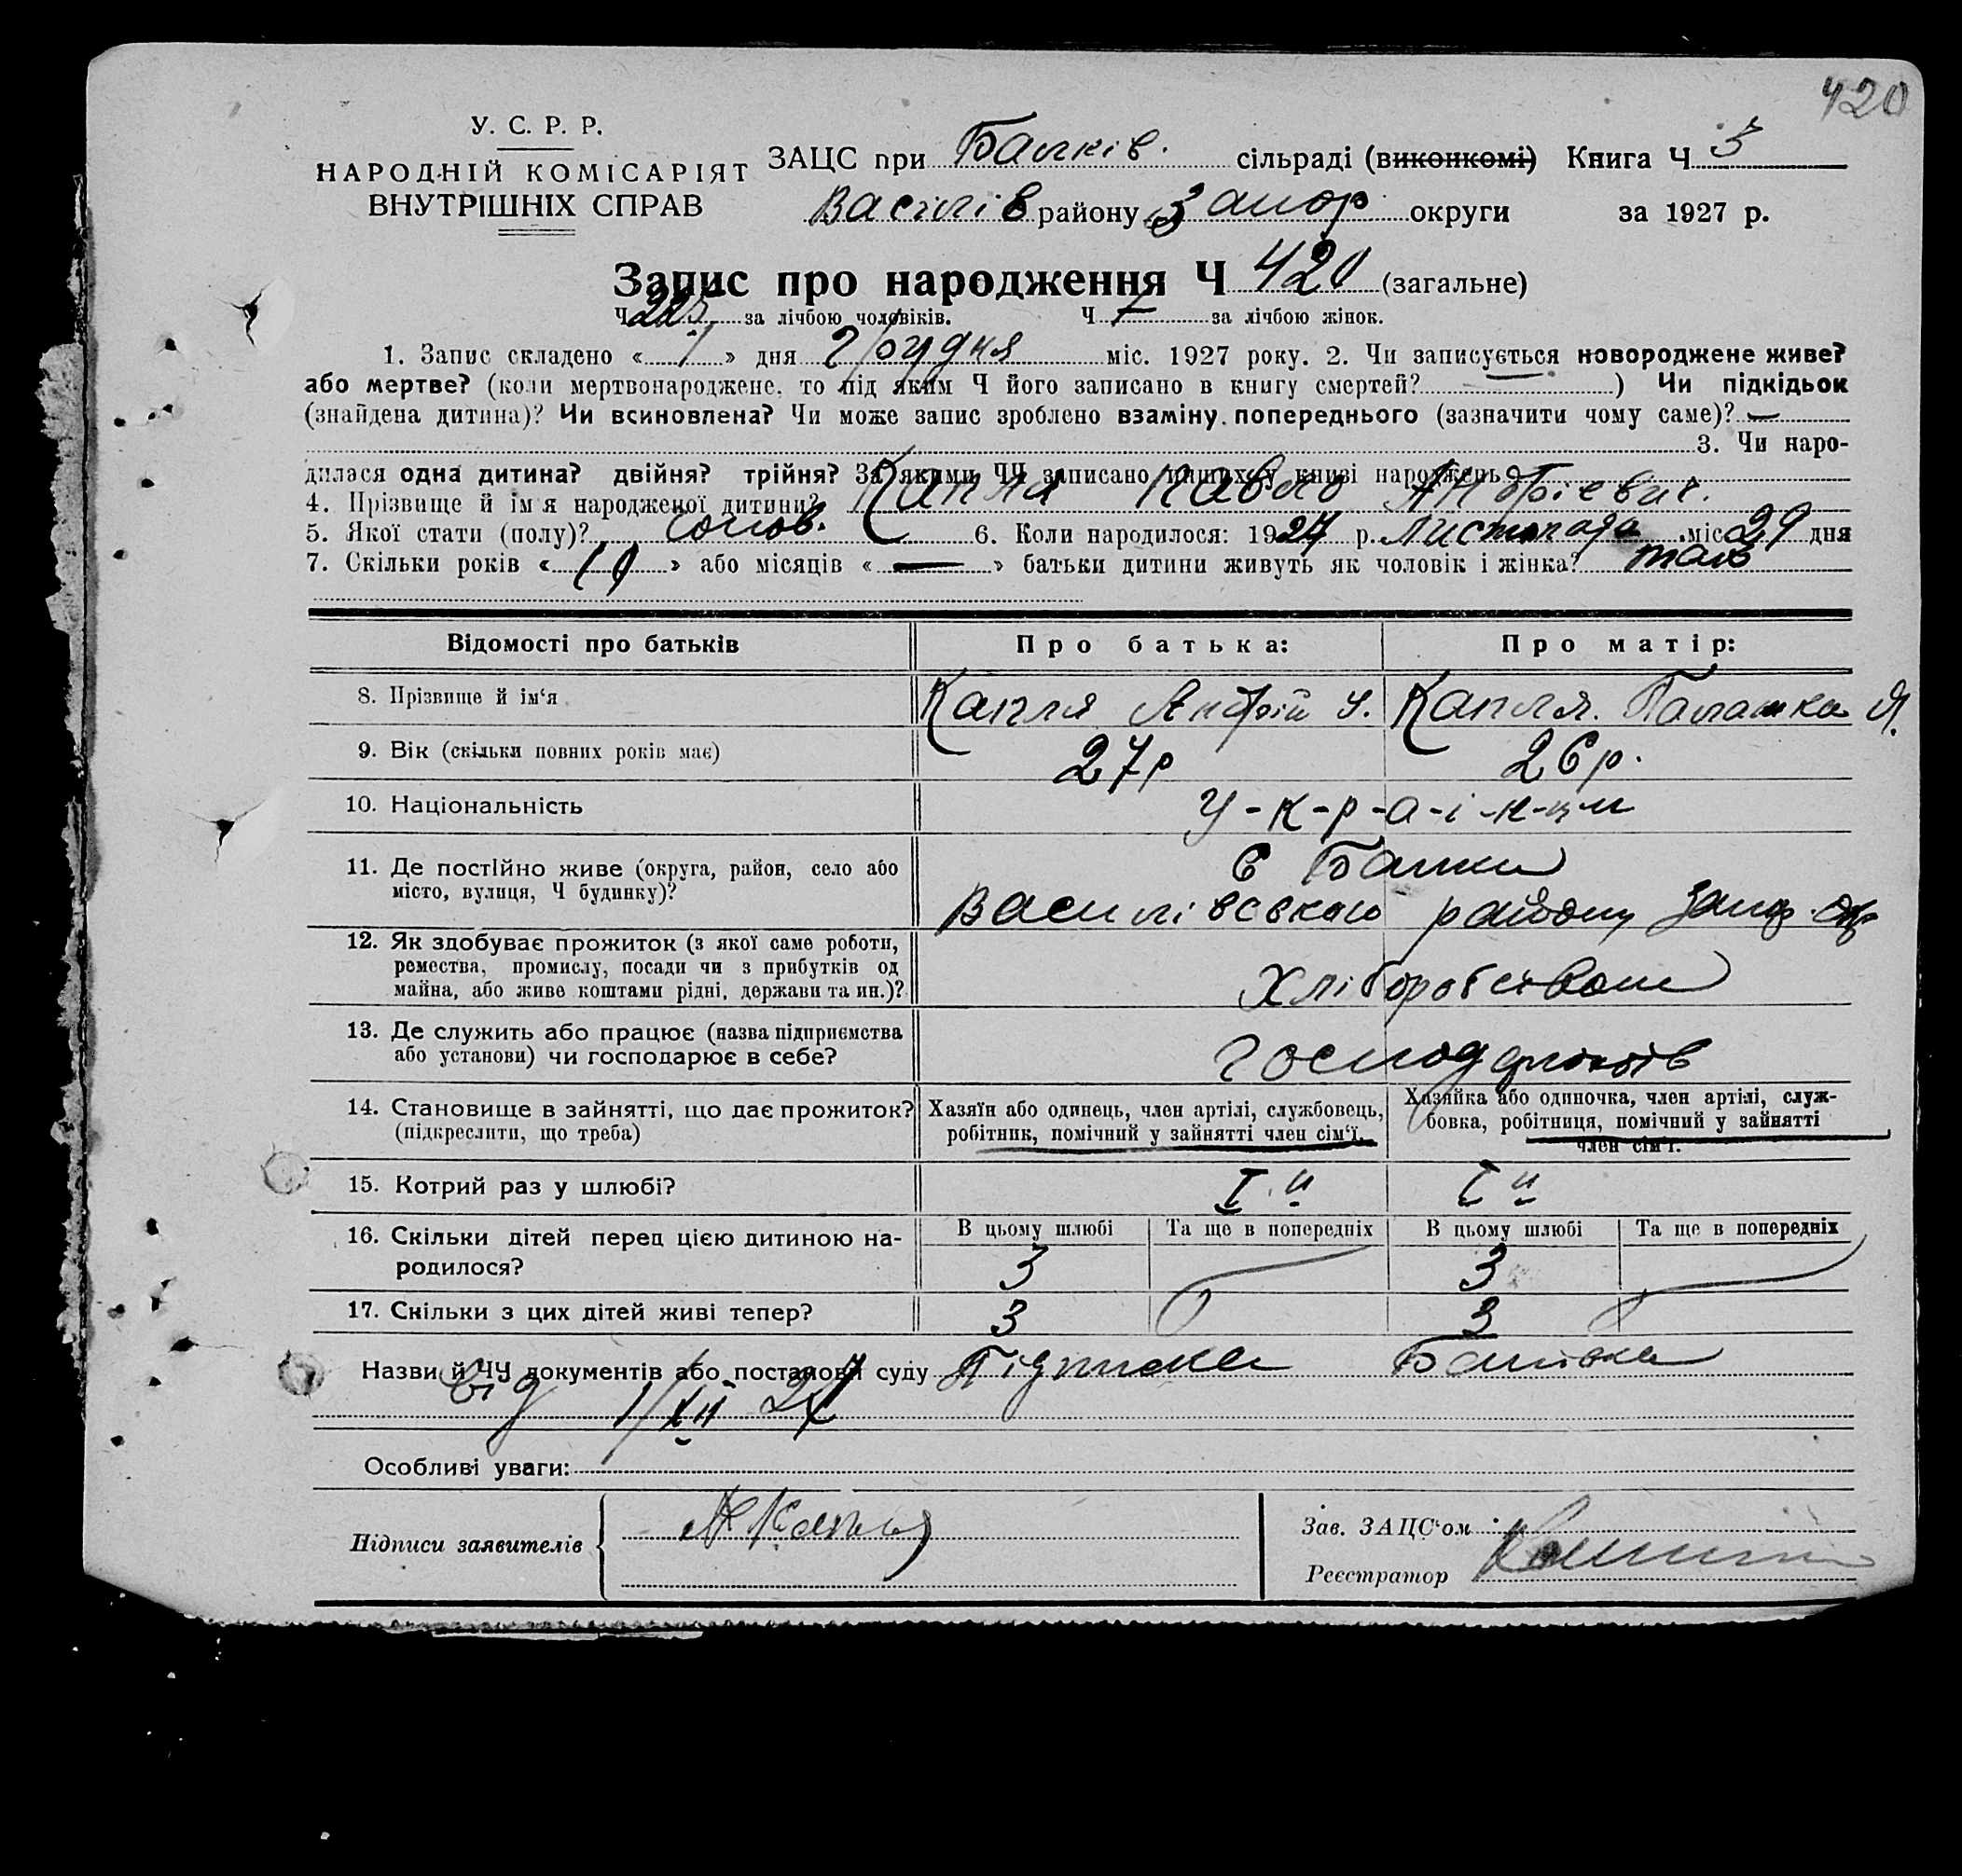 420
У. С. Р. Р.
НАРОДНІЙ КОМІСАРІЯТ
ВНУТРІШНІХ СПРАВ
ЗАЦС при Балків. сільраді (виконкомі) Книга Ч 5
Василів району Запор округи за 1927 р.
Запис про народження Ч 420 (загальне)
Ч 225 за лічбою чоловіків. Ч за лічбою жінок.
1. Запис складено « 1 » дня грудня міс. 1927 року. 2. Чи записується новороджене живе?
або мертве? (коли мертвонароджене, то під яким Ч його записано в книгу смертей? — ) Чи підкідьок
(знайдена дитина)? Чи всиновлена? Чи може запис зроблено взаміну попереднього (зазначити чому саме)? —
3. Чи наро-
дилася одна дитина? двійня? трійня? За якими ЧЧ записано инших у книзі народжень?
4. Прізвище й ім'я народженої дитини? Капля Павло Андрієвич.
5. Якої стати (полу)? чолов. 6. Коли народилося: 1927 р. Листопада міс. 29 дня
7. Скільки років « 10 » або місяців « — » батьки дитини живуть як чоловік і жінка? так
Відомості про батьків Про батька: Про матір:
8. Прізвище й ім'я Капля Андрій Капля. Палашка Я.
9. Вік (скільки повних років має) 27р 26р.
10. Національність У-к-р-а-ї-н-ці
11. Де постійно живе (округа, район, село або
місто, вулиця, Ч будинку)?
с Балки
Василівського району Запор. окр
12. Як здобуває прожиток (з якої саме роботи,
ремества, промислу, посади чи з прибутків од
майна, або живе коштами рідні, держави та ин.)?
Хліборобством
13. Де служить або працює (назва підприємства
або установи) чи господарює в себе?
14. Становище в зайнятті, що дає прожиток?
(підкреслити, що треба)
Хазяїн або одинець, член артілі, службовець,
робітник, помічний у зайнятті член сім'ї.
Хазяйка або одиночка, член артілі, служ-
бовка, робітниця, помічний у зайнятті
член сім'ї.
15. Котрий раз у шлюбі? I й I й
16. Скільки дітей перед цією дитиною на-
родилося?
В цьому шлюбі Та ще в попередніх В цьому шлюбі Та ще в попередніх
3 3
17. Скільки з цих дітей живі тепер? 3 3
Назви й ЧЧ документів або постанови суду Підписка Батька
від 1/XII 27
Особливі уваги:
Підписи заявителів Капля
Зав. ЗАЦС'ом
Реєстратор